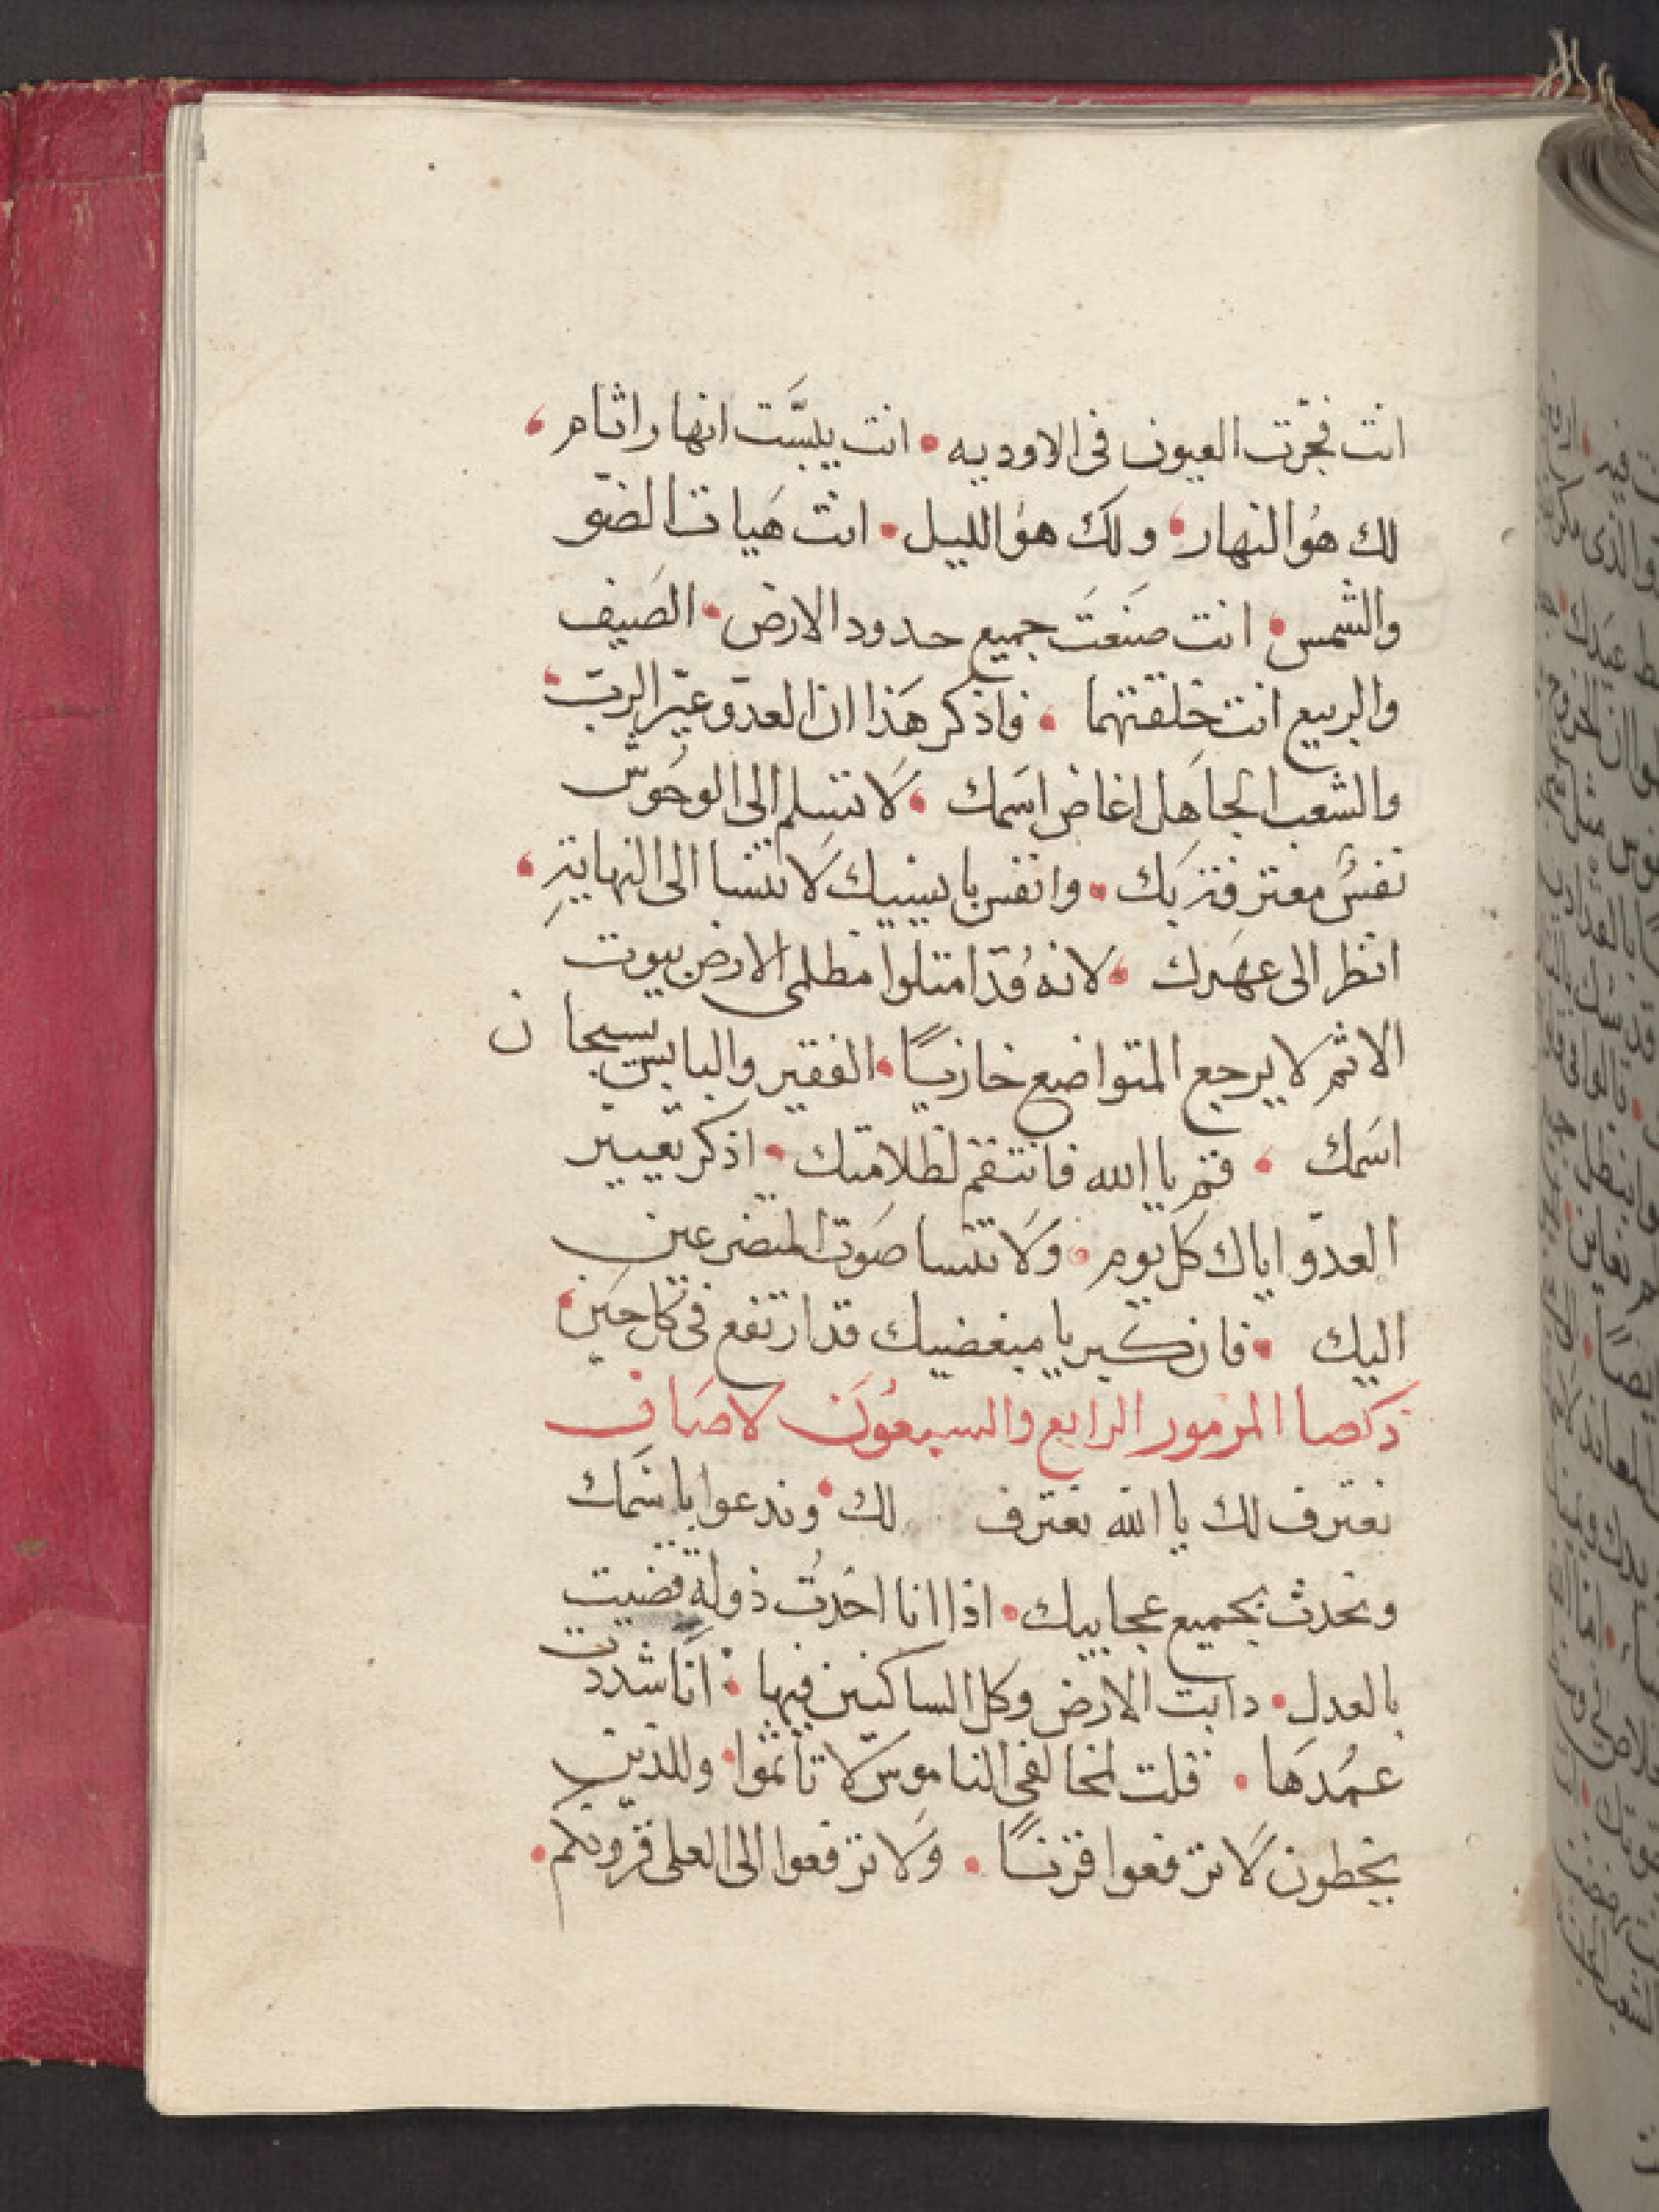 انت فجّرت العيون فى الاوديه • انت يبسَّت انهار اثام ،
لك هُو النهار ، ولك هو الليل • انت هَيات الضو
والشمس • انت صَنعَت جميع حدود الارض • الصَيف
والربيع انت خلقتهما • فاذكر هَذا ان العدوّ عيّر الربّ ،
والشعب الجاهِل اغاض اسَمك ، لَا تسلم الى الوحَوش
نفسُ معترفة بك • وانفس بايسيك لَا تنسا الى النهاية ،
انظر الى عهَدك ، لانه قد امتلوا مظلمى الارض بيوت
الاثم لا يرجع المتواضع خازيًا • الفقير والبايس يسبحان
اسَمك ، قم يا الله فانتقم لظلامتك • اذكر تعيير
العدوّ اياك كل يوم • وَلَا تنسا صَوت المتضرعين
اليك • فان كبريا مبغضيك قد ارتفع فى كل حين ،
المزمور الرابع والسبعُون لاصَاف
نعترف لك يا الله نعترف لك ، وندعوا باسَمك
ونحدث بجميع عجاييك • اذا انا اخدت دولة قضيت
بالعدل • دابت الارض وكل الساكنين فيها • انَا شددت
عمُدهَا • قلت لمخالفى الناموس لَا تاثموا ، وللذين
يخطون لَا ترفعوا قرنًا • وَلَا ترفعوا الى العلى قرونكم •